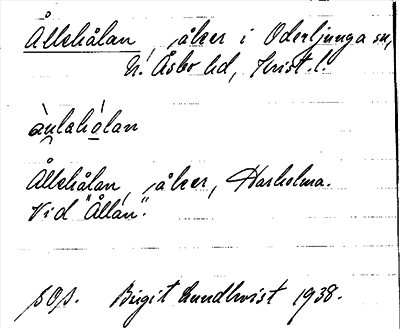 Ållehålan, åker i Oderljunga sn,
N. Åsbo hd, Krist. l.
Ållehålan, åker, Harholma.
Vid "Ållan".
Birgit Lundkvist 1938.